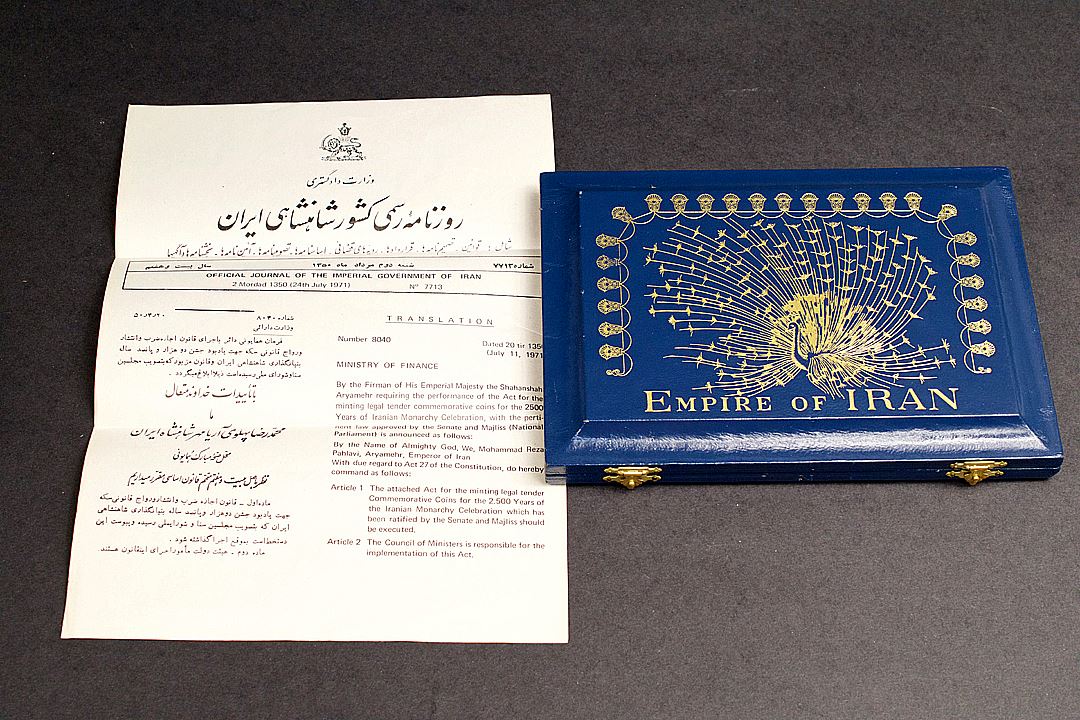 وزارت دادگستری
روزنامه رسمی کشور شاهنشاهی ایران
شامل : قوانین ـ تصمیم‌نامه‌ها ـ قراردادها ـ رویه‌های قضائی ـ اساسنامه‌ها ـ تصویبنامه‌ها ـ آئین‌نامه‌ها ـ بخشنامه‌ها و آگهیها
شماره ۷۷۱۳ شنبه دوم مرداد ماه ۱۳۵۰ سال بیست و هفتم
OFFICIAL JOURNAL OF THE IMPERIAL GOVERNMENT OF IRAN
2 Mordad 1350 (24th July 1971) N° 7713
شماره ۸۰۴۰ ۵۰/۴/۲۰
وزارت دارائی
فرمان همایونی دائر باجرای قانون اجازه ضرب وانتشار
ورواج قانونی سکه جهت یادبود جشن دو هزار و پانصد ساله
بنیانگذاری شاهنشاهی ایران وقانون مزبور که بتصویب مجلسین
سنا وشورای ملی رسیده است ذیلا ابلاغ میگردد .
با تأییدات خداوند متعال
ما
محمدرضا پهلوی آریامهر شاهنشاه ایران
نظر باصل بیست و هفتم متمم قانون اساسی مقرر میداریم
ماده اول ـ قانون اجازه ضرب وانتشار ورواج قانونی سکه
جهت یادبود جشن دو هزار و پانصد ساله بنیانگذاری شاهنشاهی
ایران که بتصویب مجلسین سنا و شورایملی رسیده و پیوست این
دستخط است بموقع اجرا گذاشته شود .
ماده دوم ـ هیئت دولت مأمور اجرای این قانون هستند.
TRANSLATION
Number 8040 Dated 20 tir 135
(July 11, 1971
MINISTRY OF FINANCE
By the Firman of His Emperial Majesty the Shahanshah
Aryamehr requiring the performance of the Act for the
minting legal tender commemorative coins for the 2500
Years of Iranian Monarchy Celebration, with the perti-
nent law approved by the Senate and Majliss (National
Parliament) is announced as follows:
By the Name of Almighty God, We, Mohammad Reza
Pahlavi, Aryamehr, Emperor of Iran
With due regard to Act 27 of the Constitution, do hereby
command as follows:
Article 1 The attached Act for the minting legal tender
Commemorative Coins for the 2,500 Years of
the Iranian Monarchy Celebration which has
been ratified by the Senate and Majliss should
be executed.
Article 2 The Council of Ministers is responsible for the
implementation of this Act.
EMPIRE OF IRAN